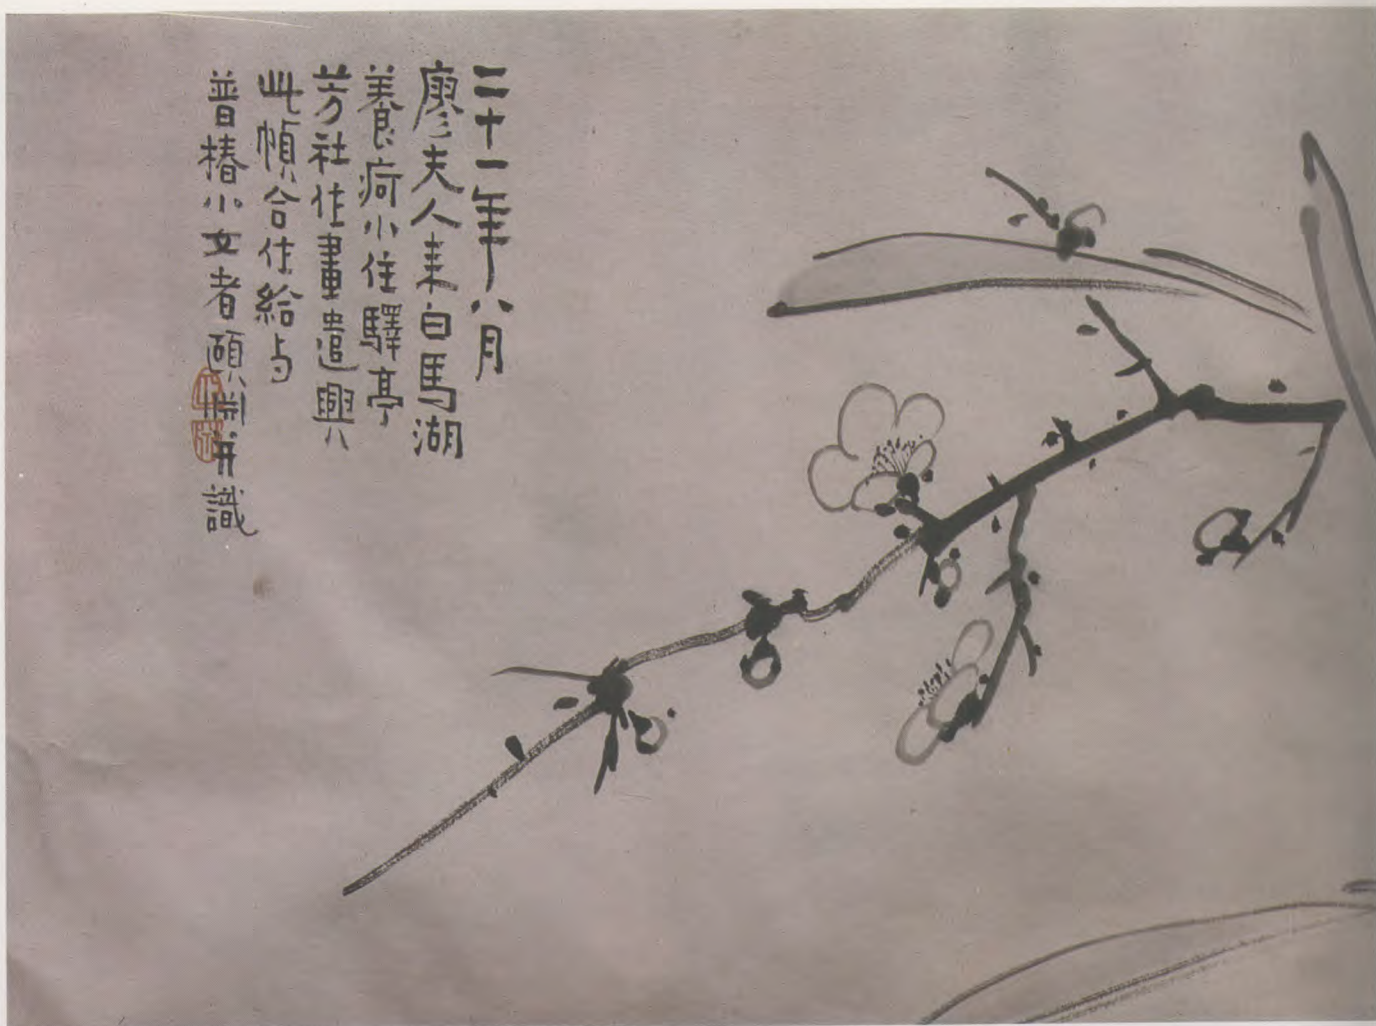 二十一年八月
廖夫人来白馬湖
養疴小住驛亭
芳社作畫遣興
此幀合作給与
普椿小女者頤淵并識